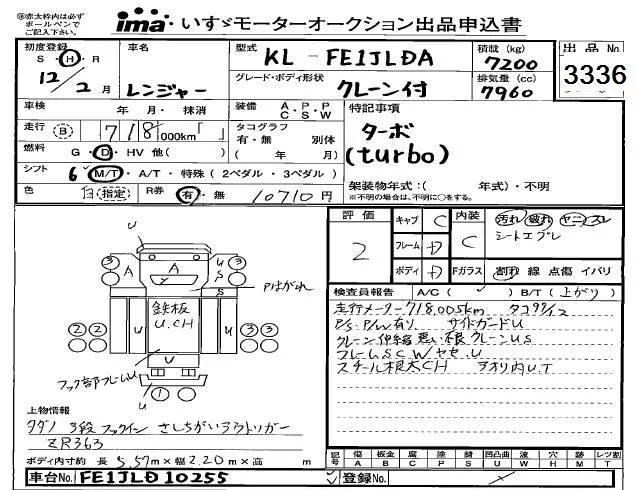 ※赤太枠内は必ず
ボールペンで
ご記入下さい。
ima いすゞモーターオークション出品申込書
初度登録 S・H・R 12/2月
車名 レンジャー
型式 KL - FE1JLDA
積載 (kg) 7200
出品No. 3336
グレード・ボディ形状 クレーン付
排気量 (cc) 7960
車検 年・月・抹消
装備 A・P・P C・S・W
特記事項 ターボ (turbo)
走行 (B) 718,000km「 」
タコグラフ 有・無 別体 ( 年 月)
燃料 G・D・HV 他( )
シフト 6 M/T・A/T・特殊(2ペダル・3ペダル)
架装物年式:( 年式)・不明
※不明の場合は、不明に○をする。
色 白(指定) R券 有・無 10710円
評価 2
キャブ C
フレーム D
ボディ D
内装 C
汚れ・破れ・ヤニ・スレ
シートエグレ
Fガラス 割れ 線 点傷 イバリ
U
3 3 A A U 3 3
S
S
Pはがれ
鉄板
U.CH
2 2 3 3
U
フック部フレームU
U
1 1
検査員報告 A/C( ✓ ) B/T(上がり)
走行メーター718,005km タコ
P/S・P/W有り サイドガードU
クレーン伸縮悪い
フレームSCWヤセ.U
上物情報
タダノ 3段 フックイン さしちがいアウトリガー
ZR363
ボディ内寸約 長 5.57m×幅 2.20m×高 m
記号 傷 A 板金 B 腐 C 塗 P 錆 S 凹凸曲 U 波 W 穴 H 跡 M レツ割 T
車台No. FE1JLD10255
登録No.